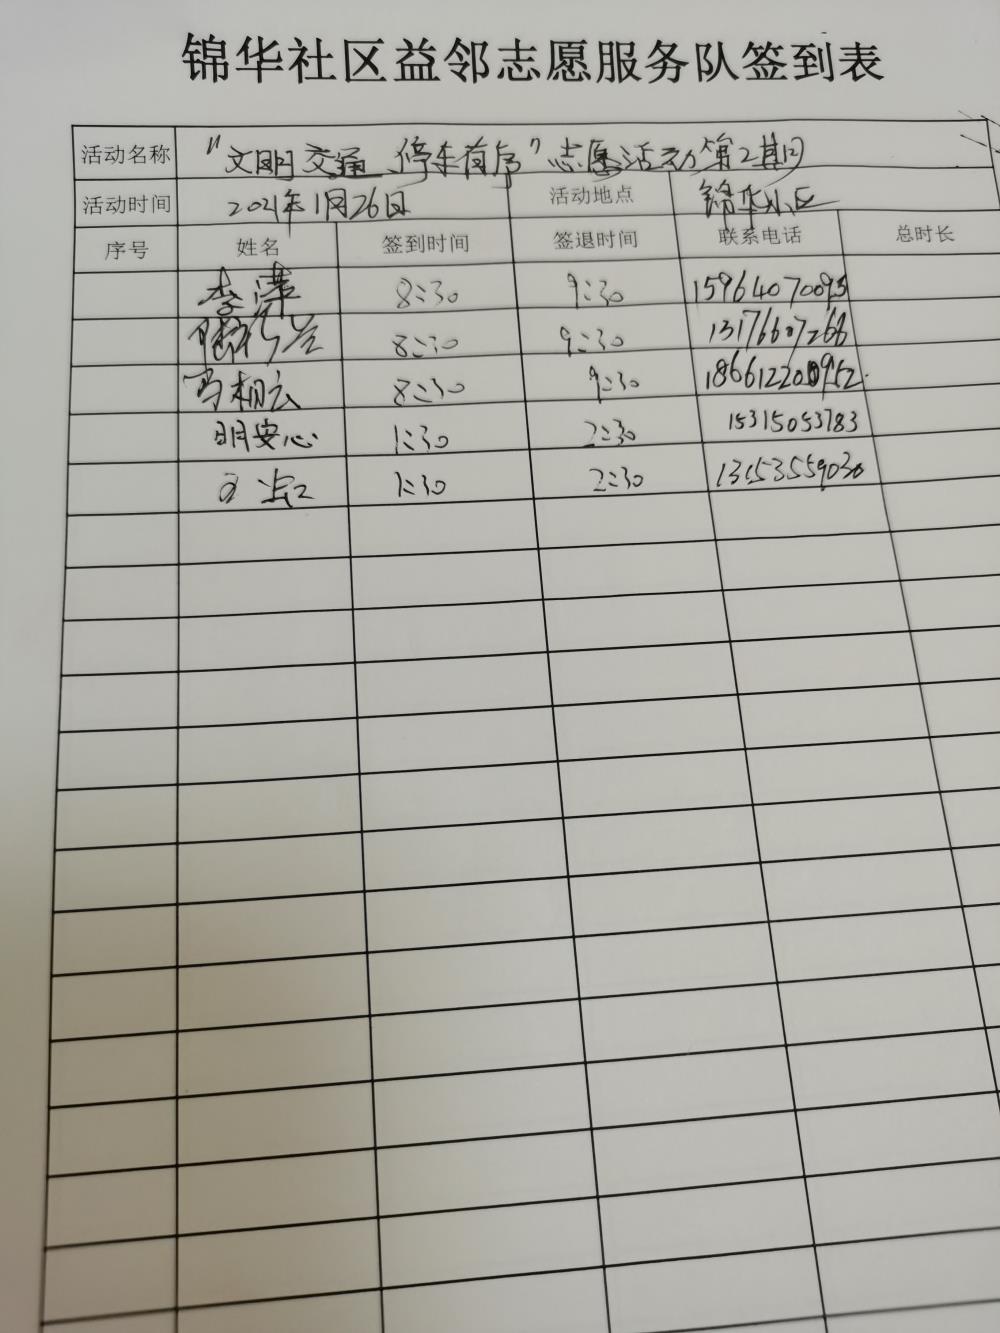 锦华社区益邻志愿服务队签到表
活动名称 "文明交通、停车有序"志愿活动第2期
活动时间 2021年1月26日 活动地点 锦华小区
序号 姓名 签到时间 签退时间 联系电话 总时长
李 8:30 9:30 15964070093
8:30 9:30 13176607266
马相云 8:30 9:30
明安心 1:30 2:30 15315053783
1:30 2:30 13153559030